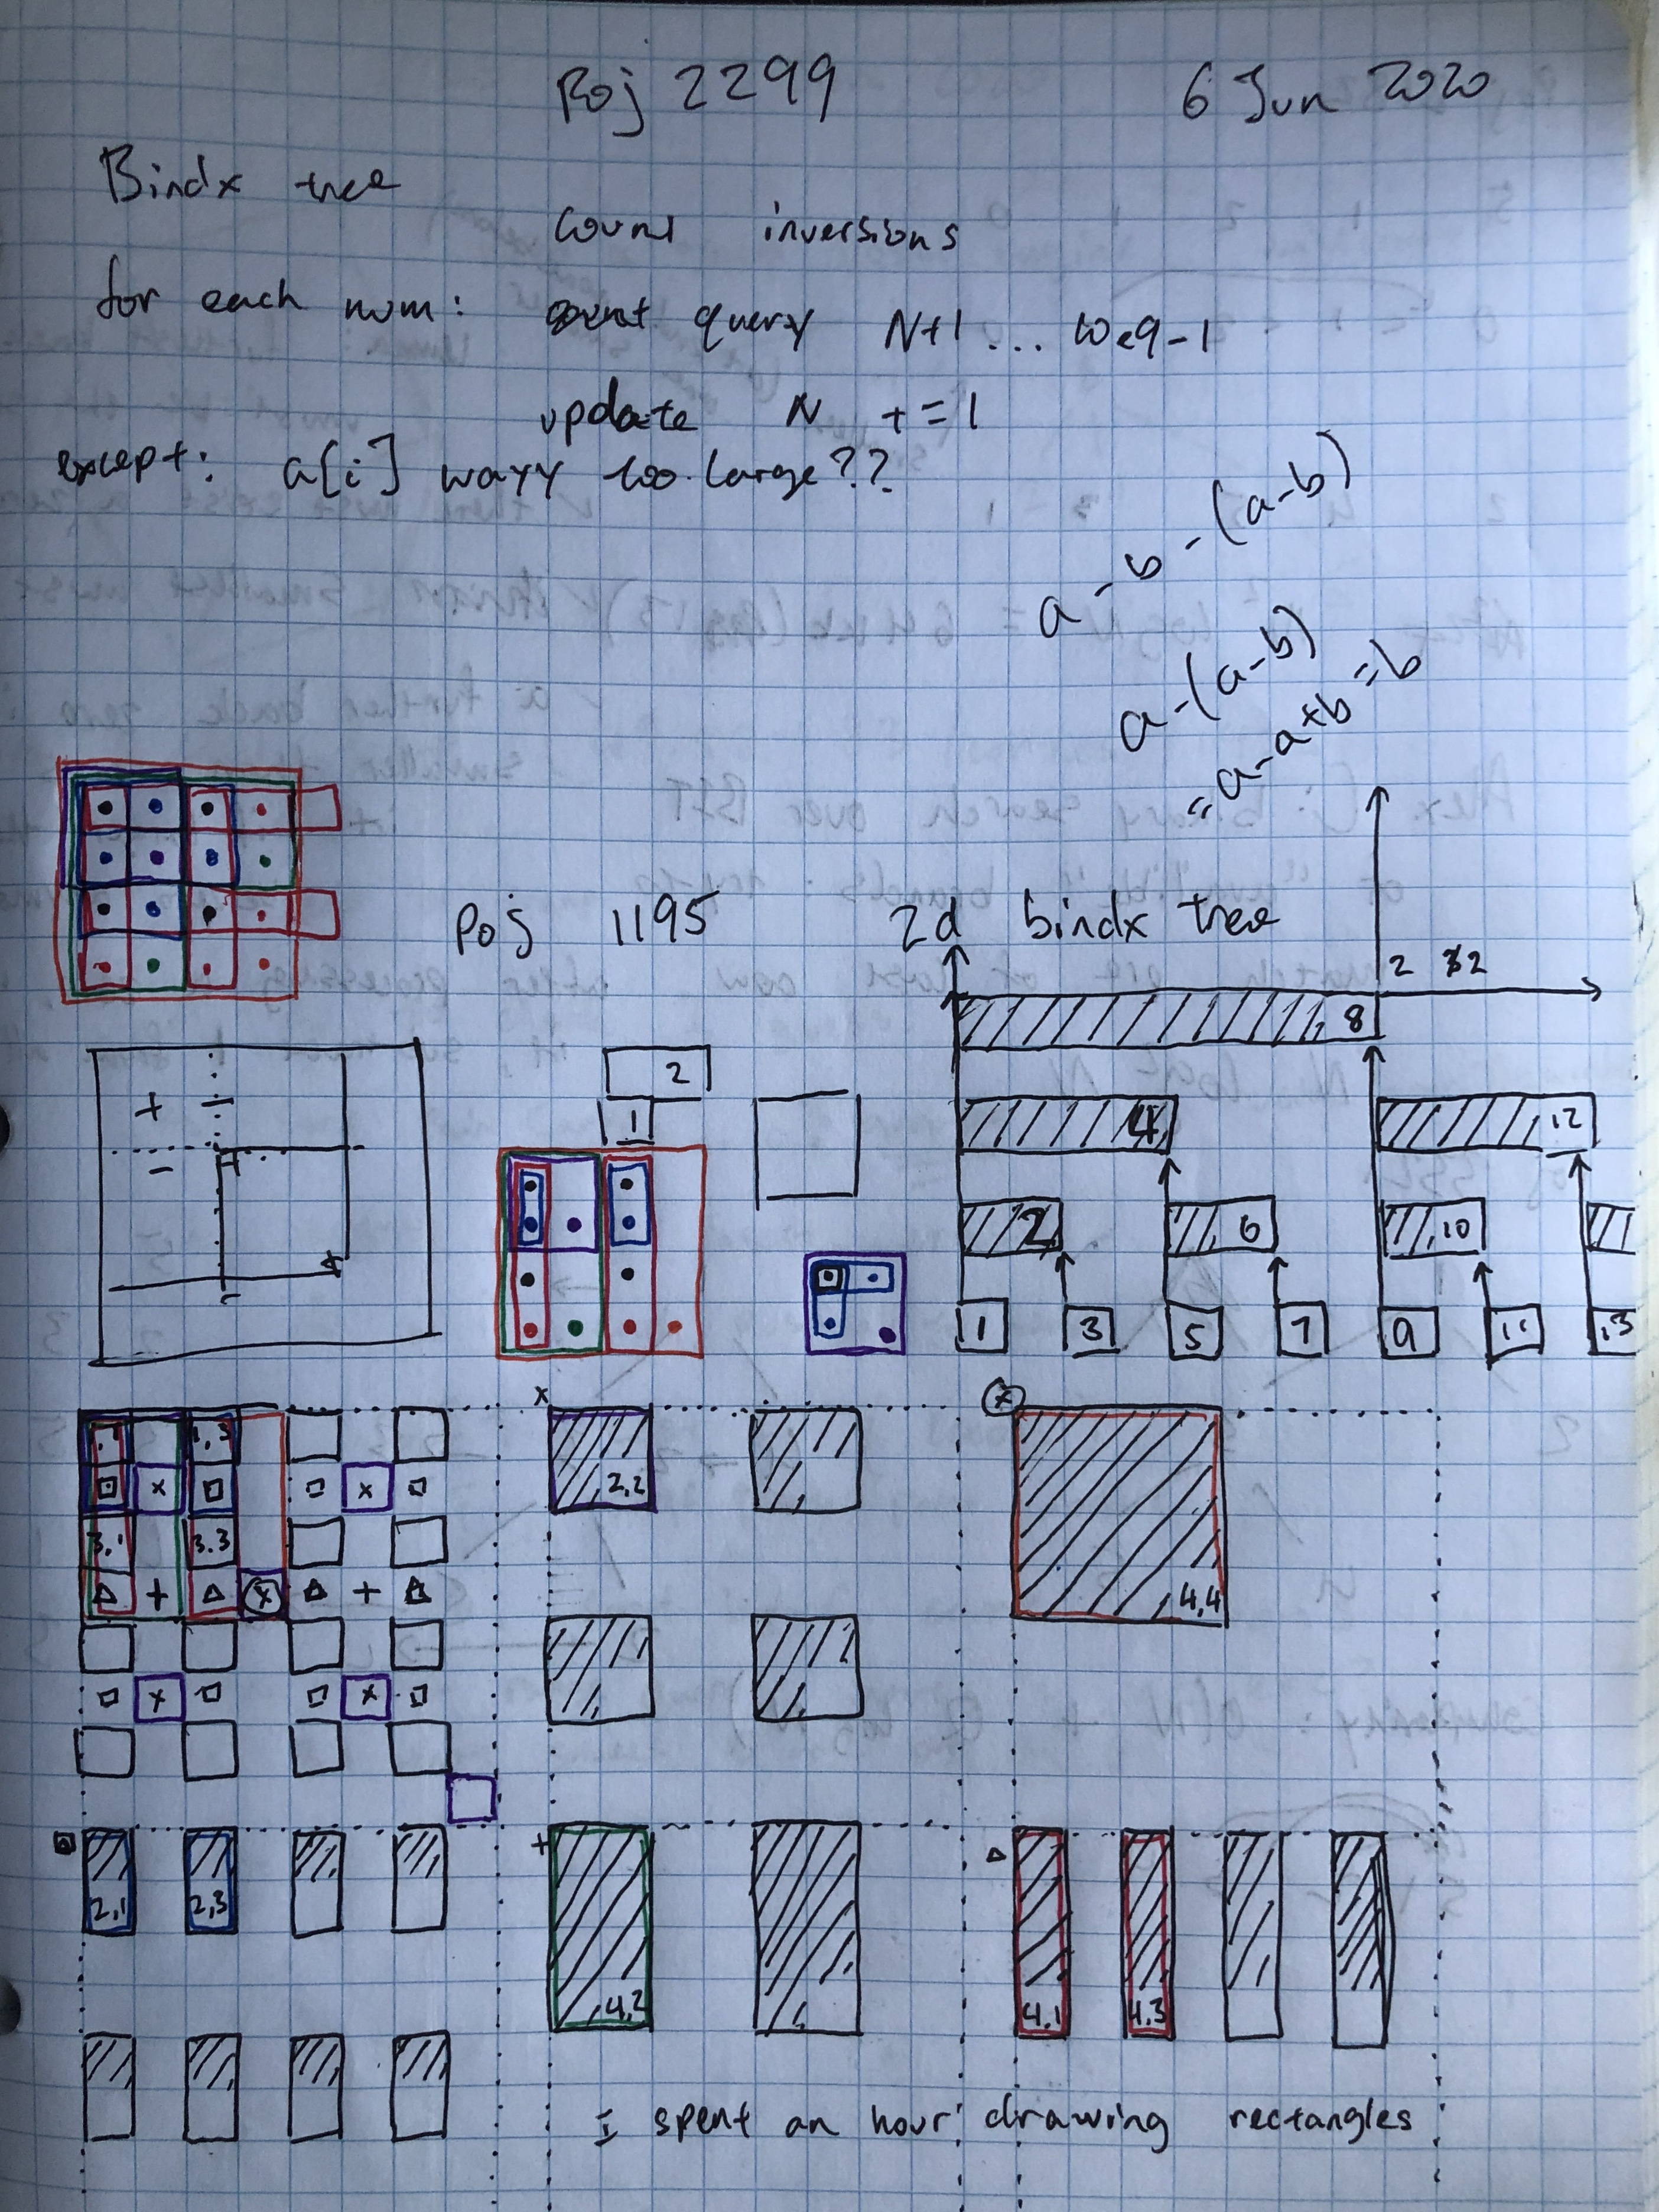 Poj 2299 6 Jun 2020
Bindx tree
count inversions
for each num: query N+1 ... 10e9-1
update N +=1
except: a[i] wayy too large??
a-b-(a-b)
a-(a-b)
=a-a+b=b
Poj 1195 2d bindx tree
2 2
8
+ -
- +
2
1
4 12
2 6 10
1 3 5 7 9 11 13
x
1,1 1,3
2,2
3,1 3,3
4,4
2,1 2,3
4,2
4,1 4,3
I spent an hour drawing rectangles